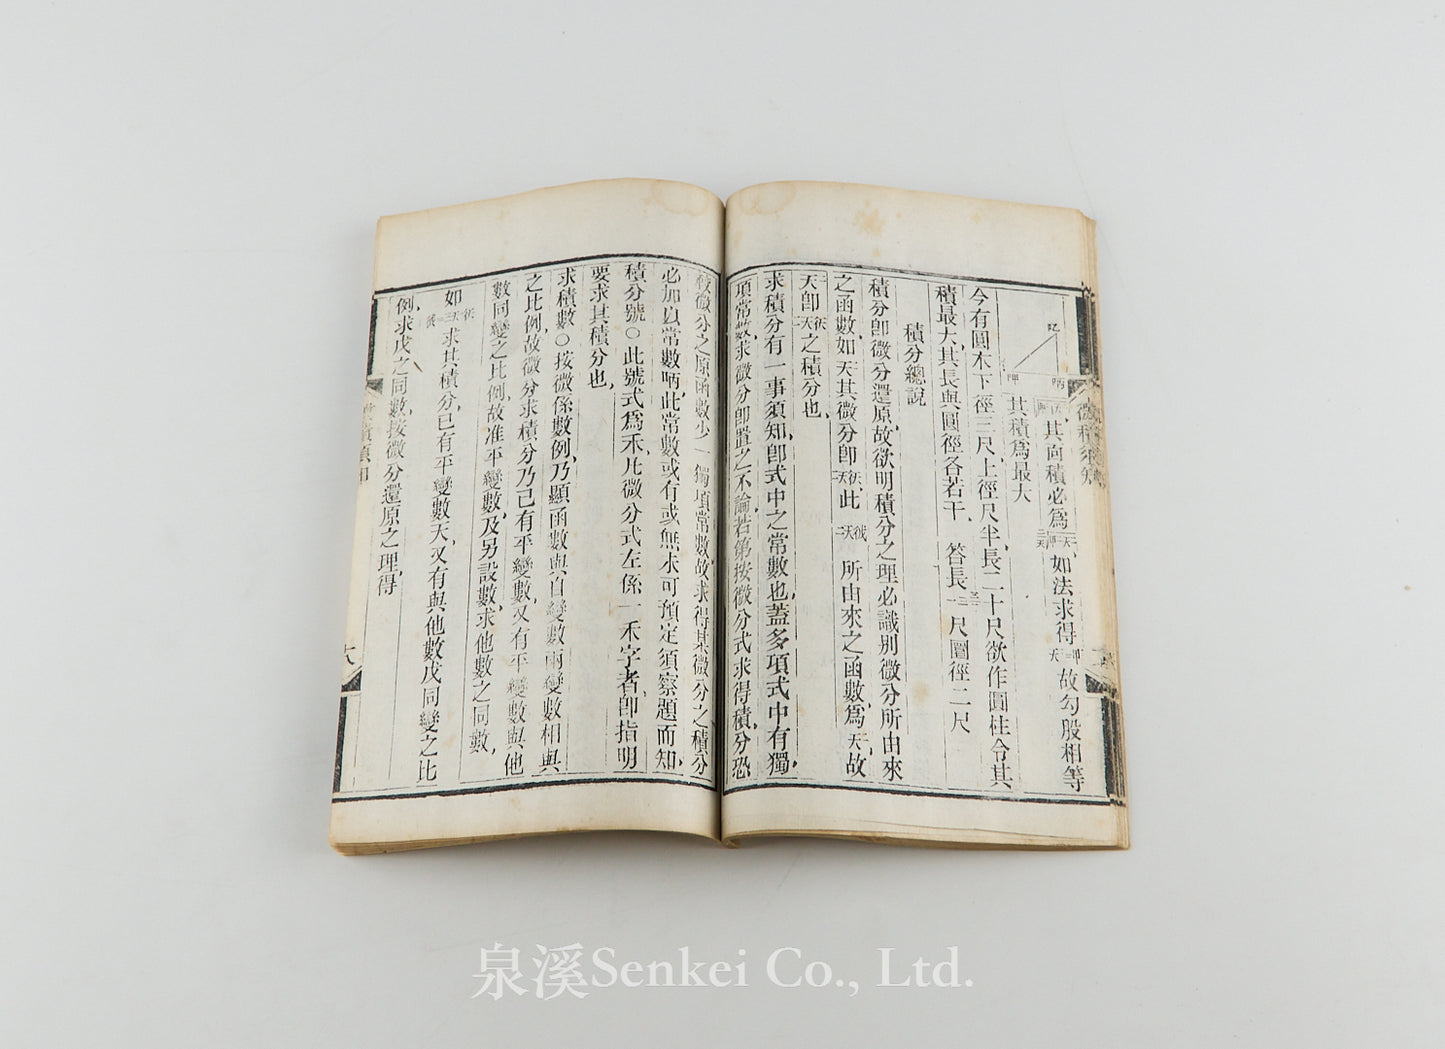 其向積必爲 如法求得 故勾股相等
其積爲最大
今有圓木下徑三尺上徑尺半長二十尺欲作圓柱令其
積最大其長與圓徑各若干 答長 尺圓徑二尺
積分總說
積分卽微分還原故欲明積分之理必識別微分所由來
之函數如天其微分卽 此 所由來之函數爲天故
天卽 之積分也
求積分有一事須知卽式中之常數也蓋多項式中有獨
項常數求微分卽置之不論若第按微分式求得積分恐
較微分之原函數少一獨項常數故求得某微分之積分
必加以常數吶此常數或有或無未可預定須察題而知
積分號○此號式爲禾凡微分式左係一禾字者卽指明
要求其積分也
求積數○按微係數例乃顯函數與自變數兩變數相與
之比例故微分求積分乃已有平變數又有平變數與他
數同變之比例故准平變數及另設數求他數之同數
如 求其積分已有平變數天又有與他數戊同變之比
例求戊之同數按微分還原之理得
泉溪Senkei Co., Ltd.